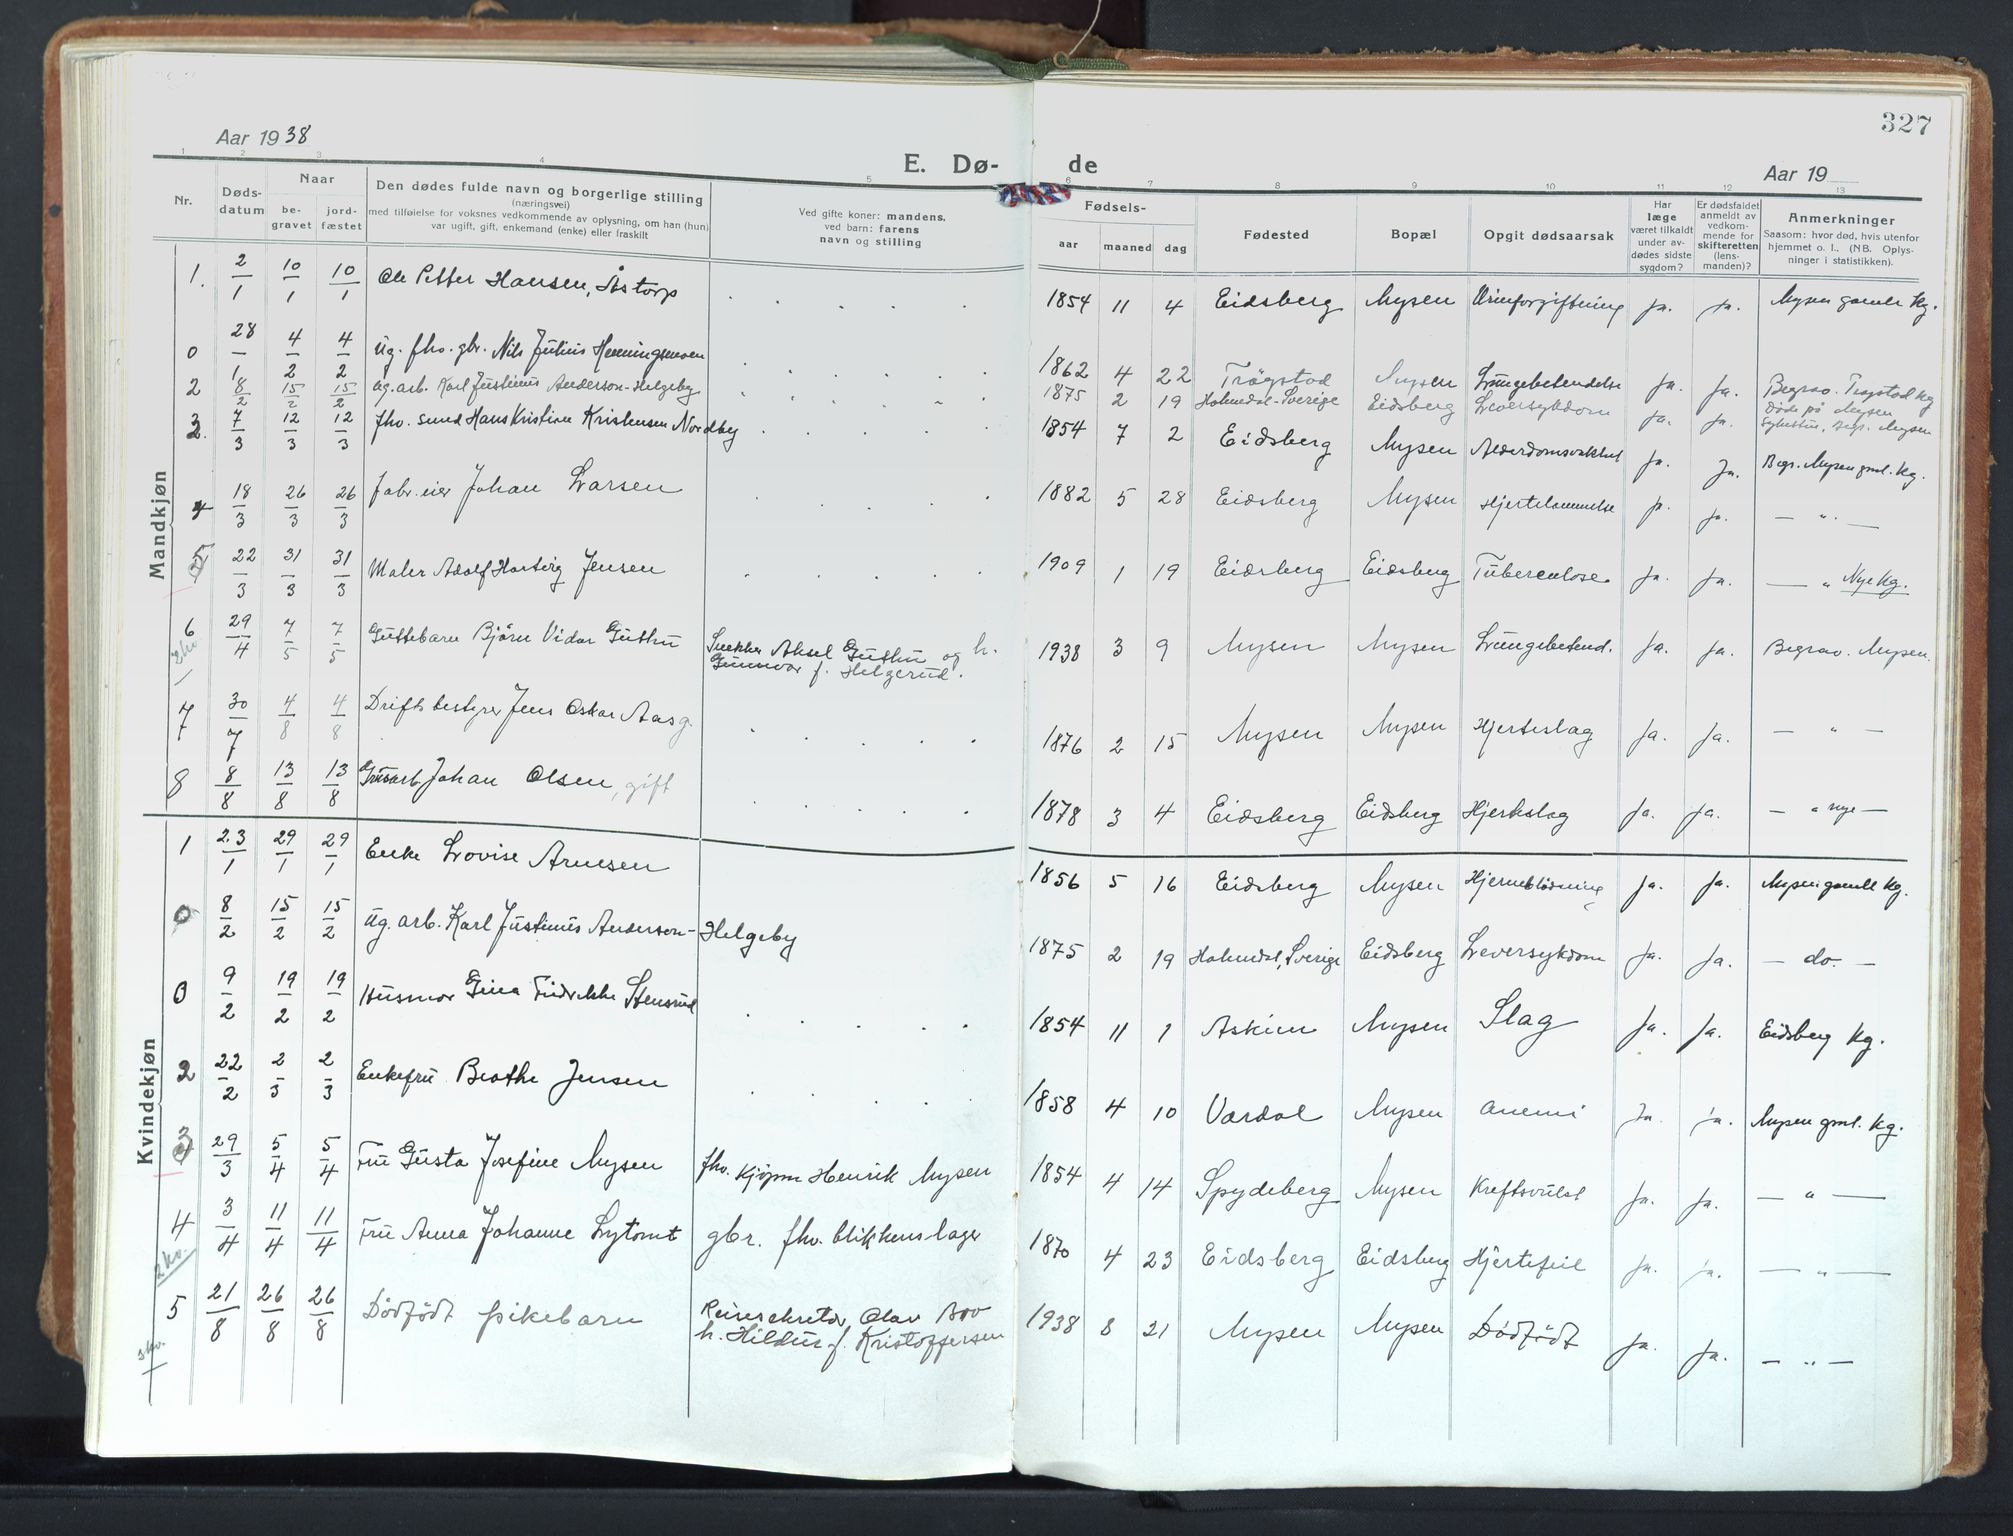 327
Aar 1938
E. Dø-
de
Aar 19
1 2 3 4 5 6 7 8 9 10 11 12 13
Nr.
Døds-
datum
Naar
be-
gravet
jord-
fæstet
Den dødes fulde navn og borgerlige stilling
(næringsvei)
med tilføielse for voksnes vedkommende av oplysning, om han (hun)
var ugift, gift, enkemand (enke) eller fraskilt
Ved gifte koner: mandens.
ved barn: farens
navn og stilling
Fødsels-
aar
maaned
dag
Fødested
Bopæl
Opgit dødsaarsak
Har
læge
været tilkaldt
under av-
dødes sidste
sygdom?
Er dødsfaldet
anmeldt av
vedkom-
mende for
skifteretten
(lens-
manden)?
Anmerkninger
Saasom: hvor død, hvis utenfor
hjemmet o. l.. (NB. Oplys-
ninger i statistikken).
Mandkjøn
1. 2/1 10/1 10/1 Ole Petter Hansen, Åstorp 1854 11 4 Eidsberg Mysen Urinforgiftning Ja. Ja. Mysen gamle kg.
0 28/1 4/2 4/2 Ug. fhv. gbr. Nils Julius Henningsmoen 1862 4 22 Trøgstad Mysen Lungebetendelse Ja. Ja. Begrav. Trøgstad kg
2 8/2 15/2 15/2 Ug. arb. Karl Justinus Anderson-Helgeby 1875 2 19 Holmedal-Sverige Eidsberg Leversykdom Ja. Ja. Døde på Mysen
Sykestue, begr. Mysen
3. 7/3 12/3 12/3 fhv. smed Hans Kristian Kristensen Nordby 1854 7 2 Eidsberg Mysen Alderdomsvakhet Ja. Ja. Begr. Mysen gml. kg.
4 18/3 26/3 26/3 Fabr. eier Johan Larsen 1882 5 28 Eidsberg Mysen Hjertelammelse Ja. Ja. — " —
5 22/3 31/3 31/3 Maler Adolf Hartvig Jensen 1909 1 19 Eidsberg Eidsberg Tuberculose Ja. Ja. — " Nye kg.
6 29/4 7/5 7/5 Guttebarn Bjørn Vidar Guthu Snekker Aksel Guthu og h. 1938 3 9 Mysen Mysen Lungebetend. Ja. Ja. Begrav. Mysen.
Gunnvor f. Helgerud.
7 30/7 4/8 4/8 Driftsbestyrer Jens Oskar Aas g. 1876 2 15 Mysen Mysen Hjerteslag Ja. Ja. — " —
8 8/8 13/8 13/8 Grusarb Johan Olsen, gift 1878 3 4 Eidsberg Eidsberg Hjerteslag Ja. Ja. — " nye —
Kvindekjøn
1 23/1 29/1 29/1 Enke Lovise Arnesen 1856 5 16 Eidsberg Mysen Hjerneblødning Ja. Ja. Mysen gamle kg.
0 8/2 15/2 15/2 Ug. arb. Karl Justinus Anderson-Helgeby 1875 2 19 Holmedal, Sverige Eidsberg Leversykdom Ja. Ja. — do. —
0 9/2 19/2 19/2 Husmor Gina Fredrikke Stensrud 1854 11 1 Askim Mysen Slag Ja. Ja. Eidsberg kg.
2 22/2 2/3 2/3 Enkefru Beathe Jensen 1858 4 10 Vardal Mysen Anemi Ja. Ja. Mysen gml. kg.
3 29/3 5/4 5/4 Fru Gusta Josefine Mysen fhv. kjøpm Henrik Mysen 1854 4 14 Spydeberg Mysen Kreftsvulst Ja. Ja. — " —
4 3/4 11/4 11/4 Fru Anna Johanne Lytomt gbr. fhv. blikkenslager 1870 4 23 Eidsberg Eidsberg Hjertefeil Ja. Ja. — " —
2 kv.
5 21/8 26/8 26/8 Dødfødt pikebarn Reisesekretær Olav Boo 1938 8 21 Mysen Mysen Dødfødt Ja. Ja. — " —
h. Hildur f. Kristoffersen